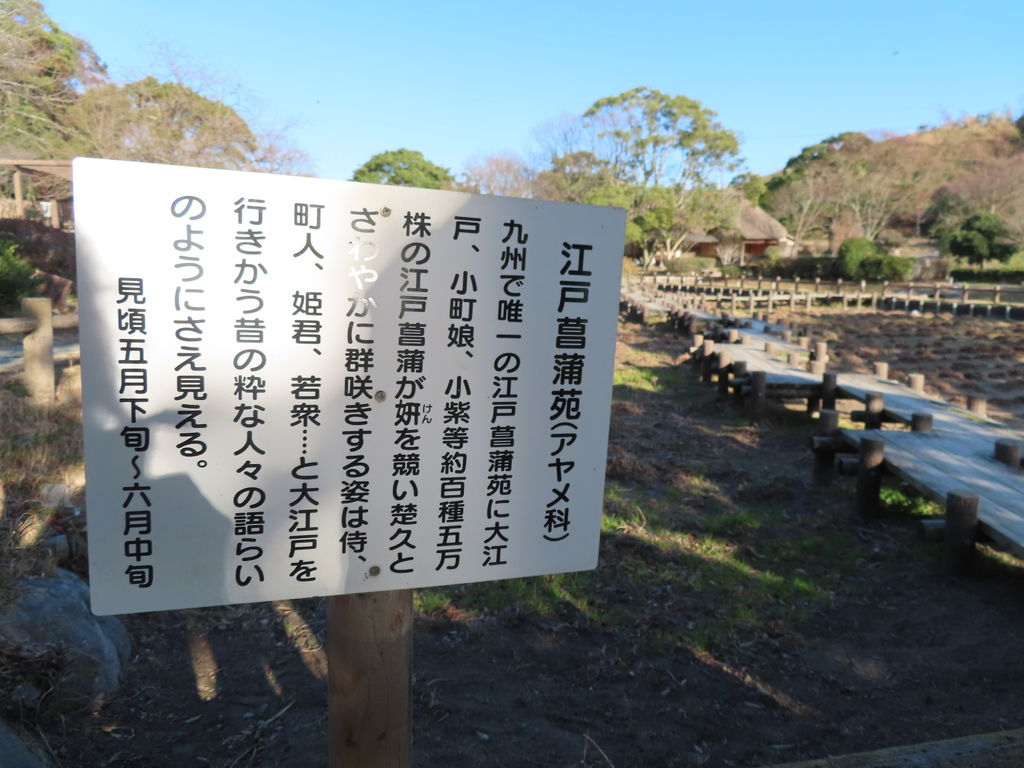 江戸菖蒲苑(アヤメ科)
九州で唯一の江戸菖蒲苑に大江
戸、小町娘、小紫等約百種五万
株の江戸菖蒲が妍を競い楚久と
けん
さわやかに群咲きする姿は侍、
町人、姫君、若衆……と大江戸を
行きかう昔の粋な人々の語らい
のようにさえ見える。
見頃五月下旬〜六月中旬